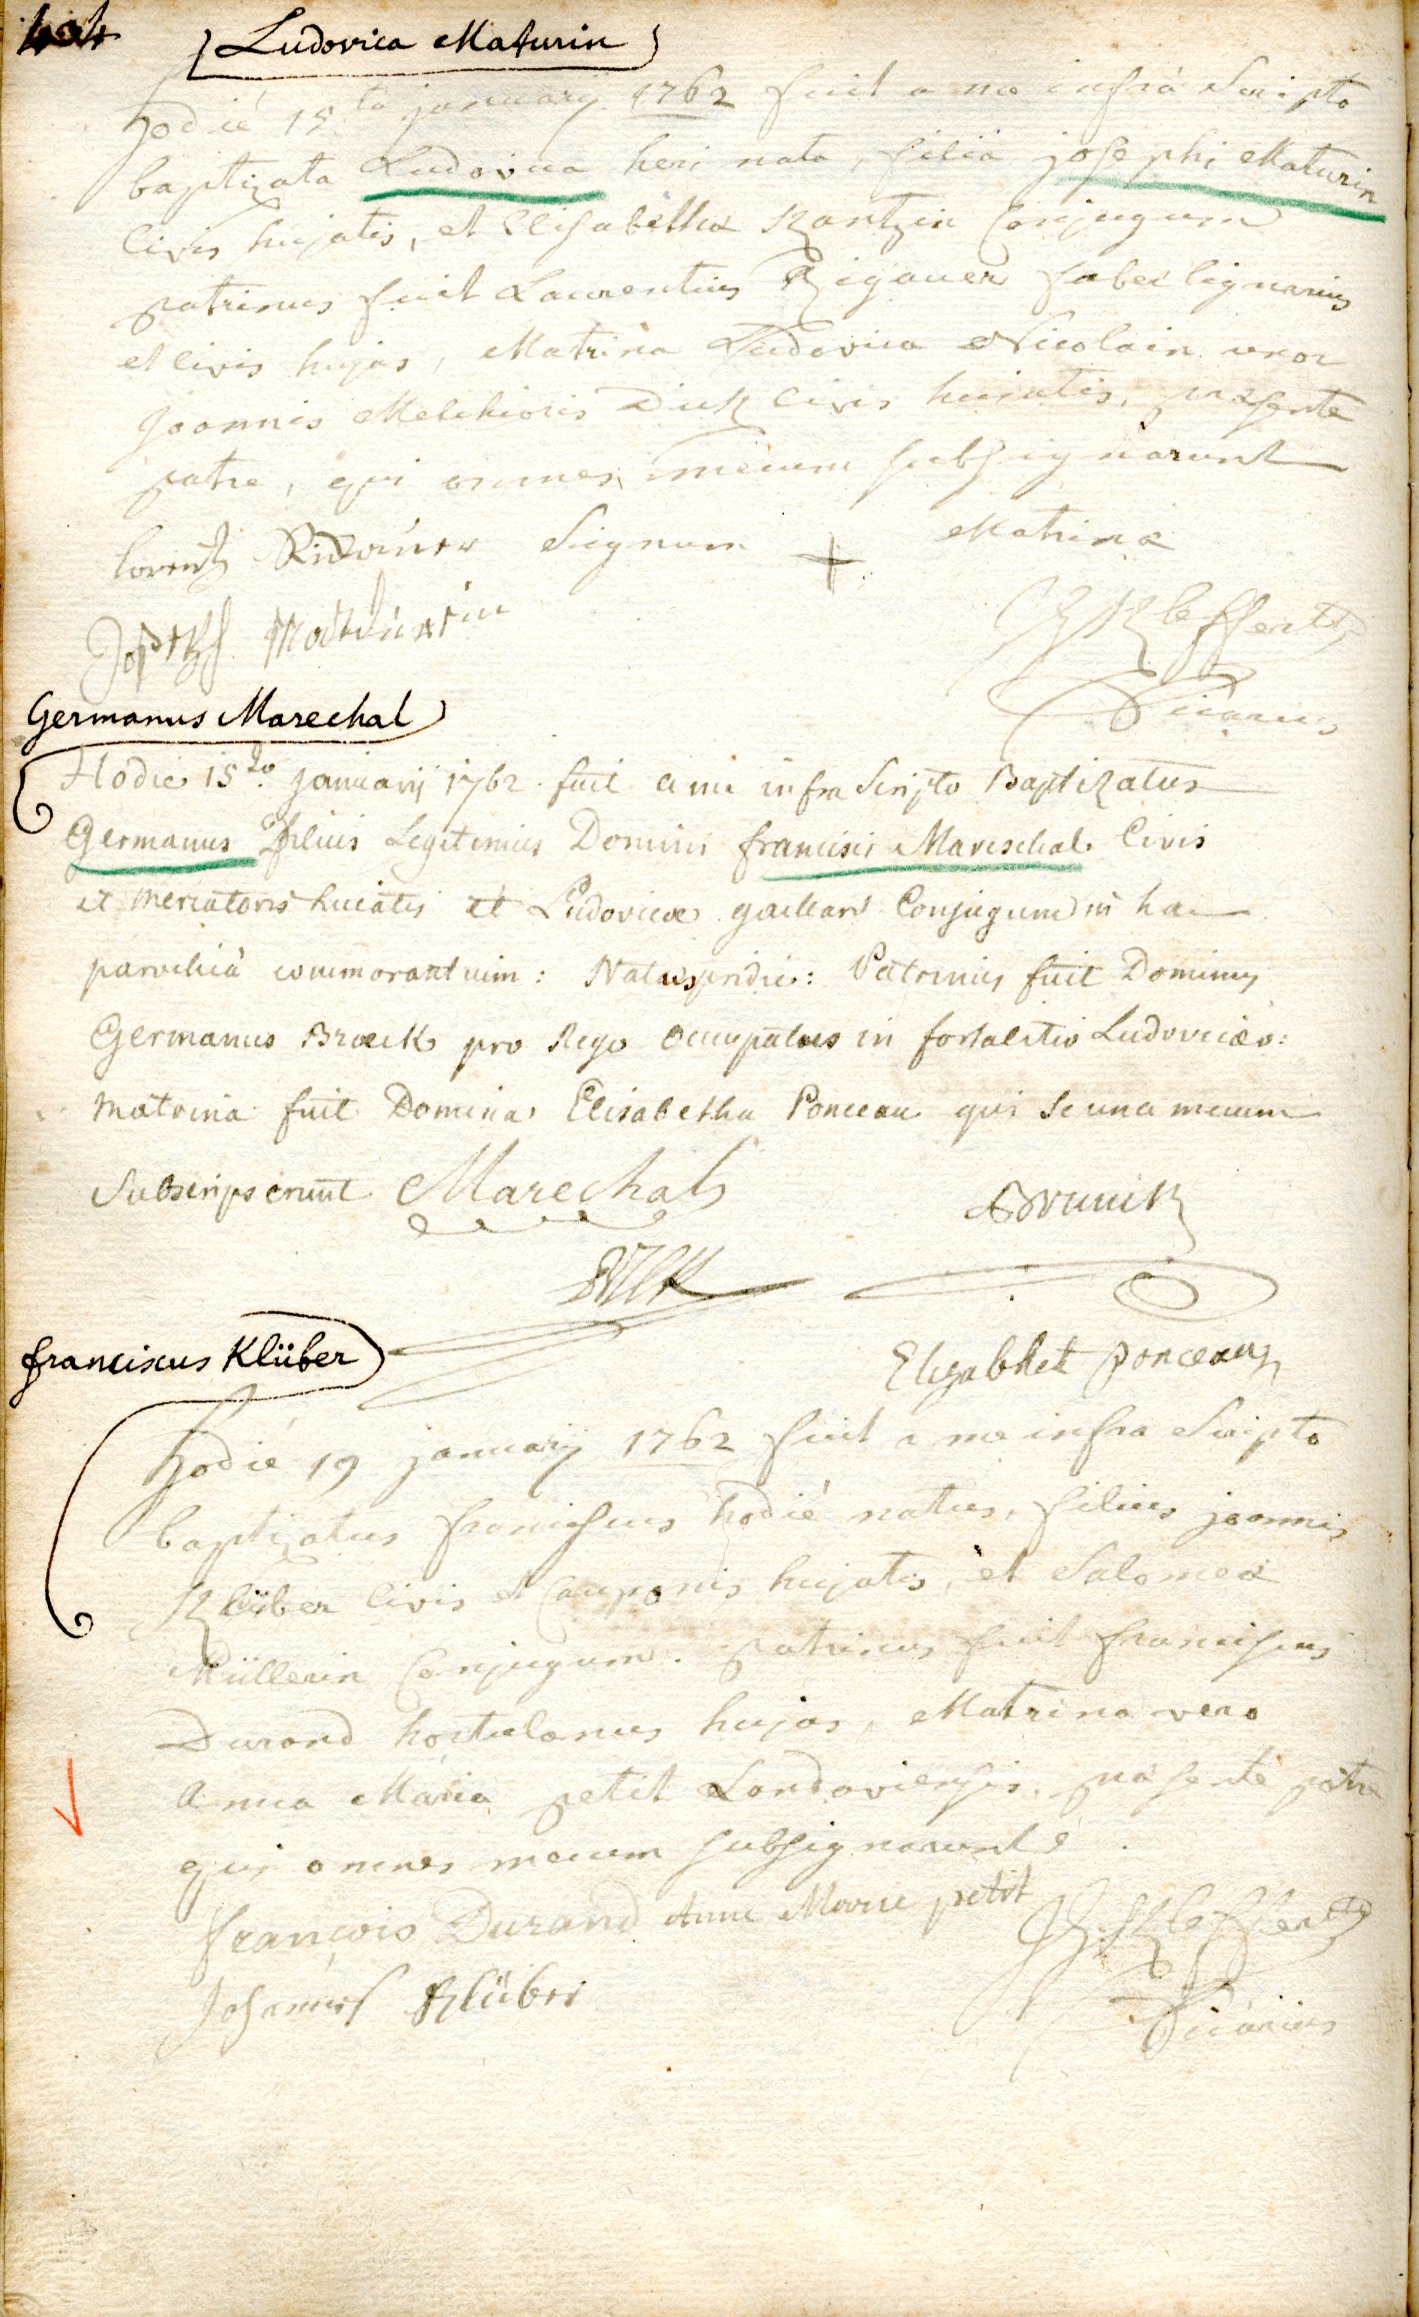 404
Ludovica Maturin
hodié 15ta january 1762 fuit a me infrà Scripto
baptizata Ludovica heri nata, filia josephi Maturin
Civis hujatis, et Elisabetha Kantzin Conjugum
patrinus fuit Laurentius Rigauer faber lignarius
et civis hujas, Matrina Ludovica Nicolain uxor
Joannis Melchioris Dick Civis hujatis, præsente
patre, qui omnes mecum subsignarunt
lorentz Signum + Matrinæ
Joseph Mathurin
Vicarius
Germanus Marechal
Hodie 15to Januarij 1762 fuit a me infra Scripto Baptizatus
Germanus filius Legitimus Domini francisci Mareschal Civis
et mercatoris huiatis et Ludovicæ gaillard Conjugum in hac
parochiâ commorantium: Natus pridie: Patrinus fuit Dominus
Germanus Broeck pro Rege occupatus in fortalitio Ludoviceo:
matrina fuit Domina Elisabetha Ponceau qui se una mecum
Subscripserunt Marechal
Elisabhet ponceau
franciscus Klüber
hodié 19 january 1762 fuit a me infra Scripto
baptizatus franciscus hodié natus, filius joannis
Klüber Civis et Cauponis hujatis, et Salomeæ
Müllerin Conjugum. patrinus fuit franciscus
Durand hortulanus hujas, Matrina vero
Anna Maria petit Londoviensis, præsente patre
qui omnes mecum subsignarunt
françois Durand Anne Marie petit
Johannes Klüber
Vicarius